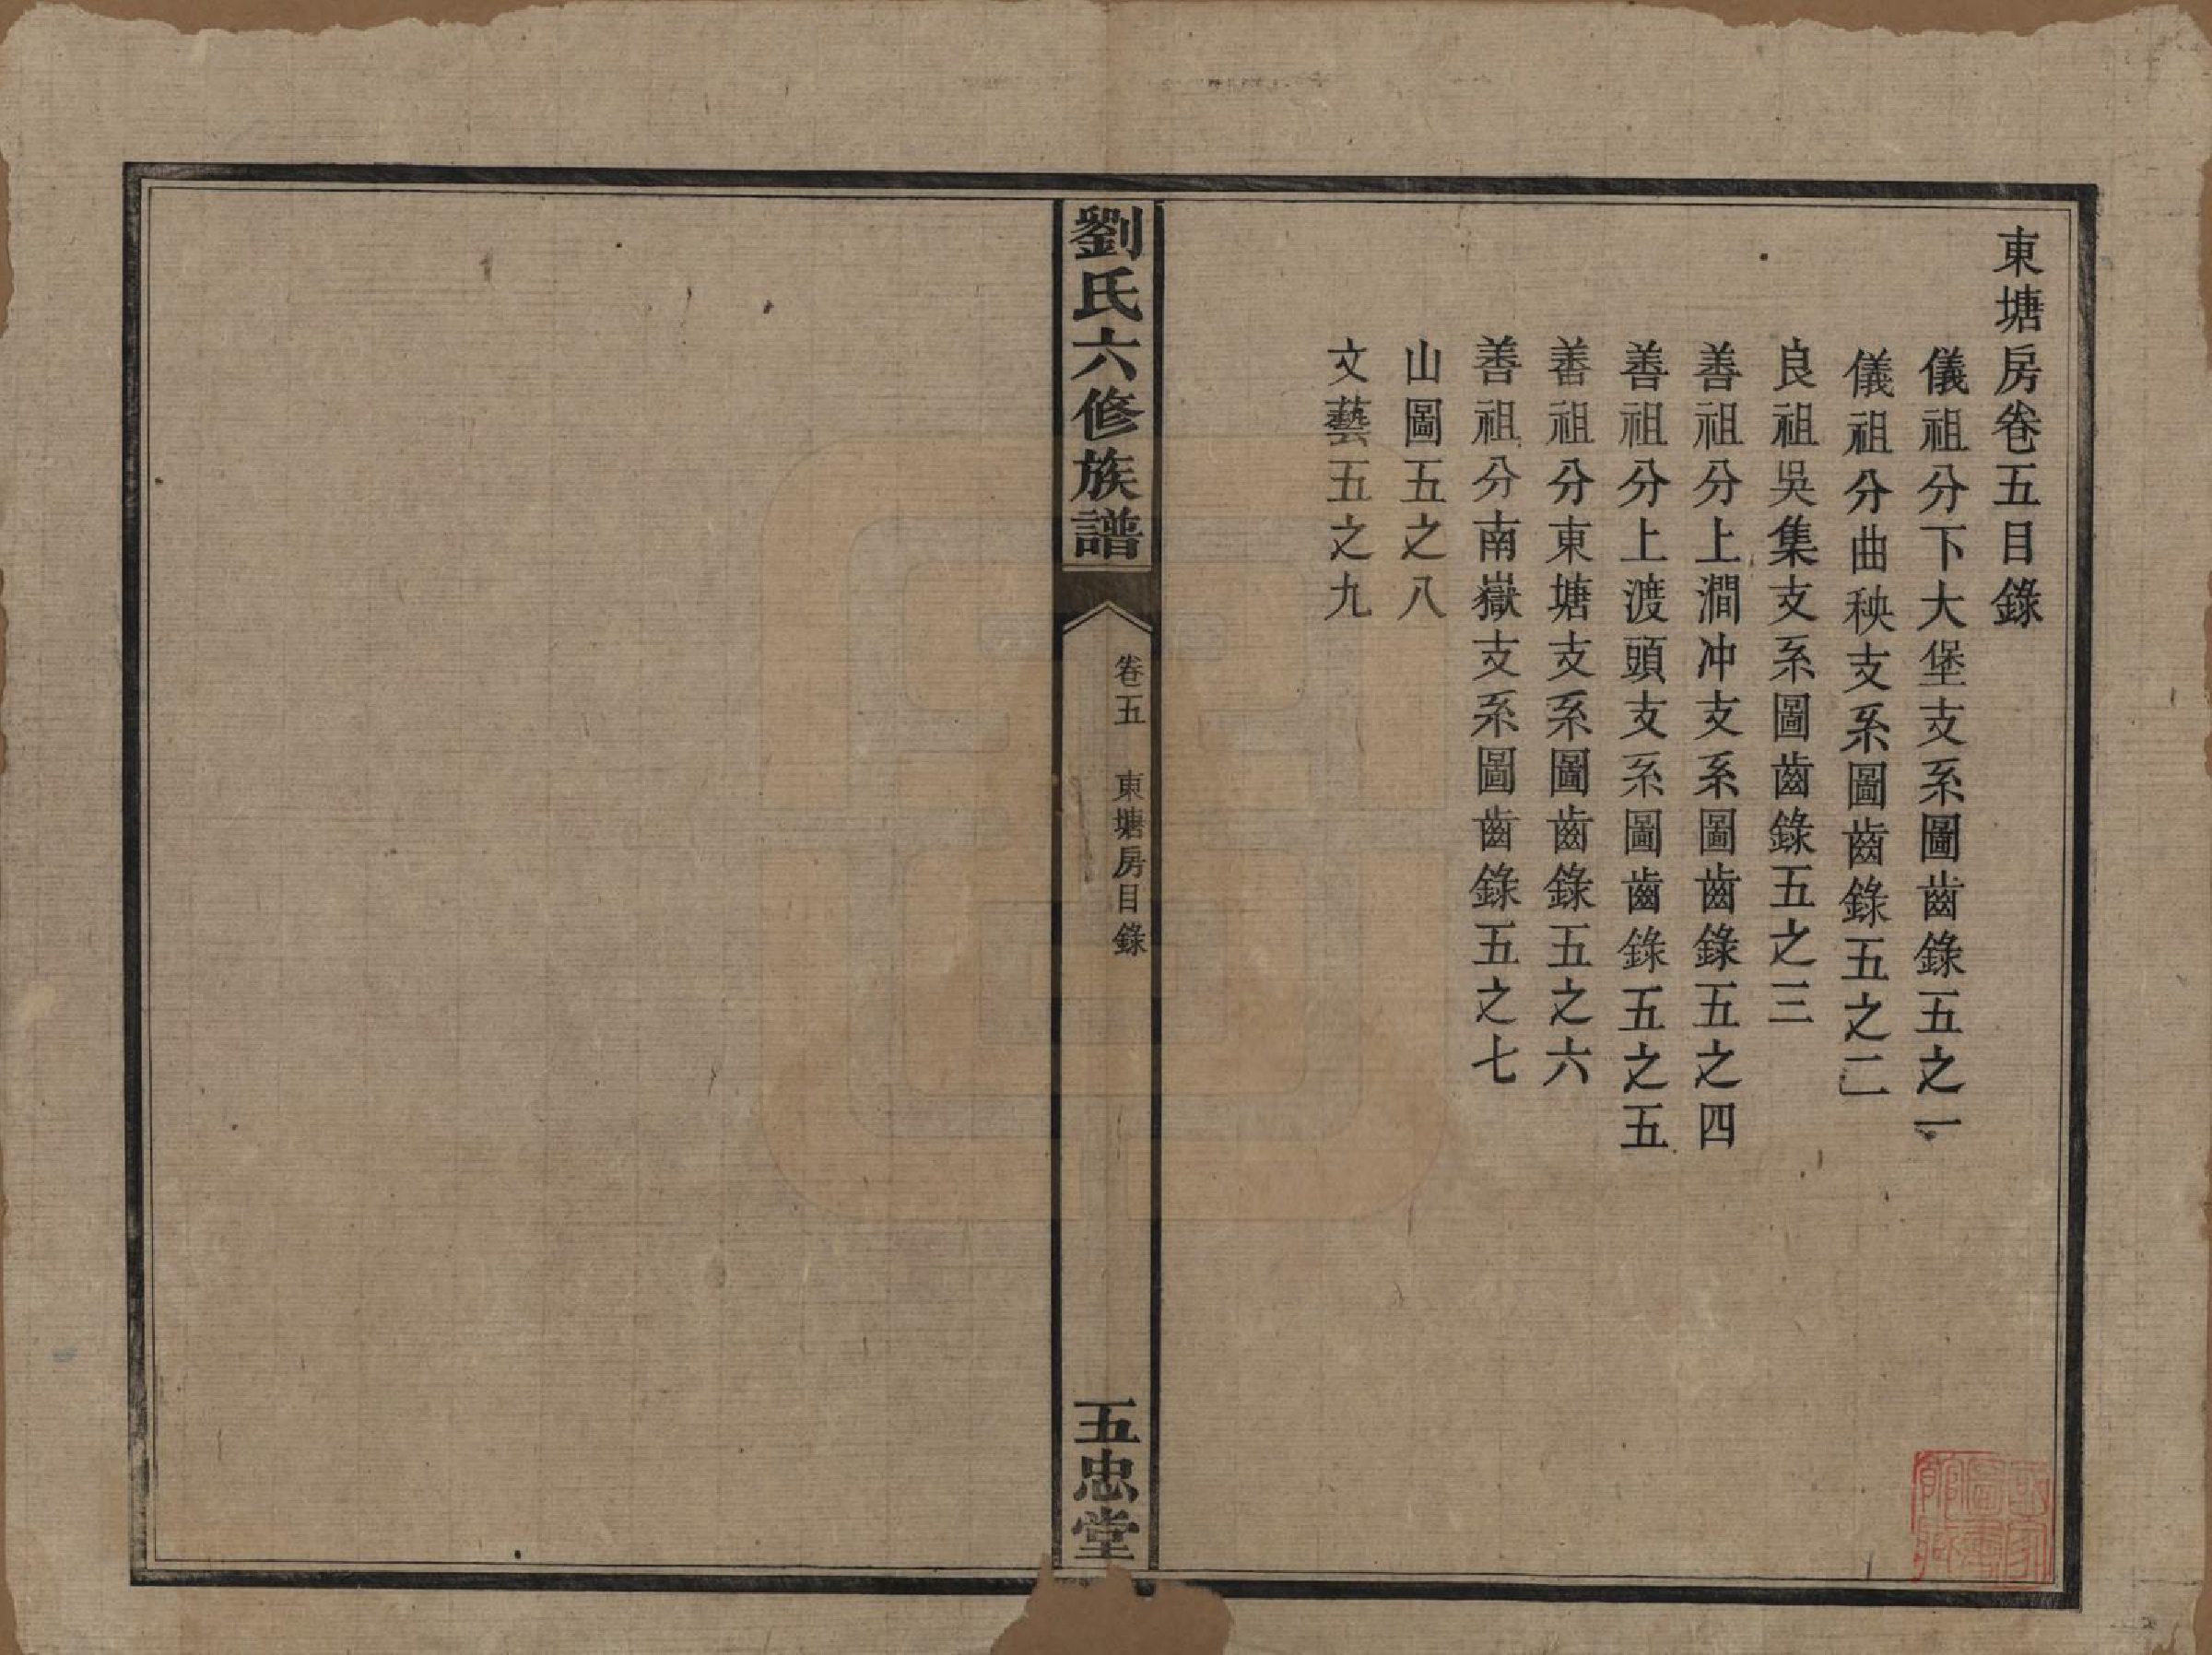 東塘房卷五目錄
儀祖分下大堡支系圖齒錄五之一
儀祖分曲秧支系圖齒錄五之二
良祖吳集支系圖齒錄五之三
善祖分上澗冲支系圖齒錄五之四
善祖分上渡頭支系圖齒錄五之五
善祖分東塘支系圖齒錄五之六
善祖分南嶽支系圖齒錄五之七
山圖五之八
文藝五之九
劉氏六修族譜
卷五 東塘房目錄
五忠堂
國家圖書館藏